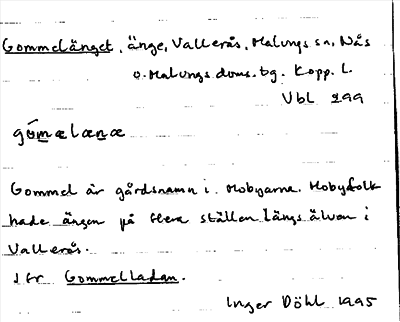 Gommelänget, änge, Vallerås, Malungs sn, Nås
o. Malungs doms. tg. Kopp. l.
Vbl 299
gómælænæ
Gommel är gårdsnamn i Mobyarna. Mobyfolk
hade ängen på flera ställen längs älven i
Vallerås.
Jfr Gommelladan.
Inger Döhl 1995